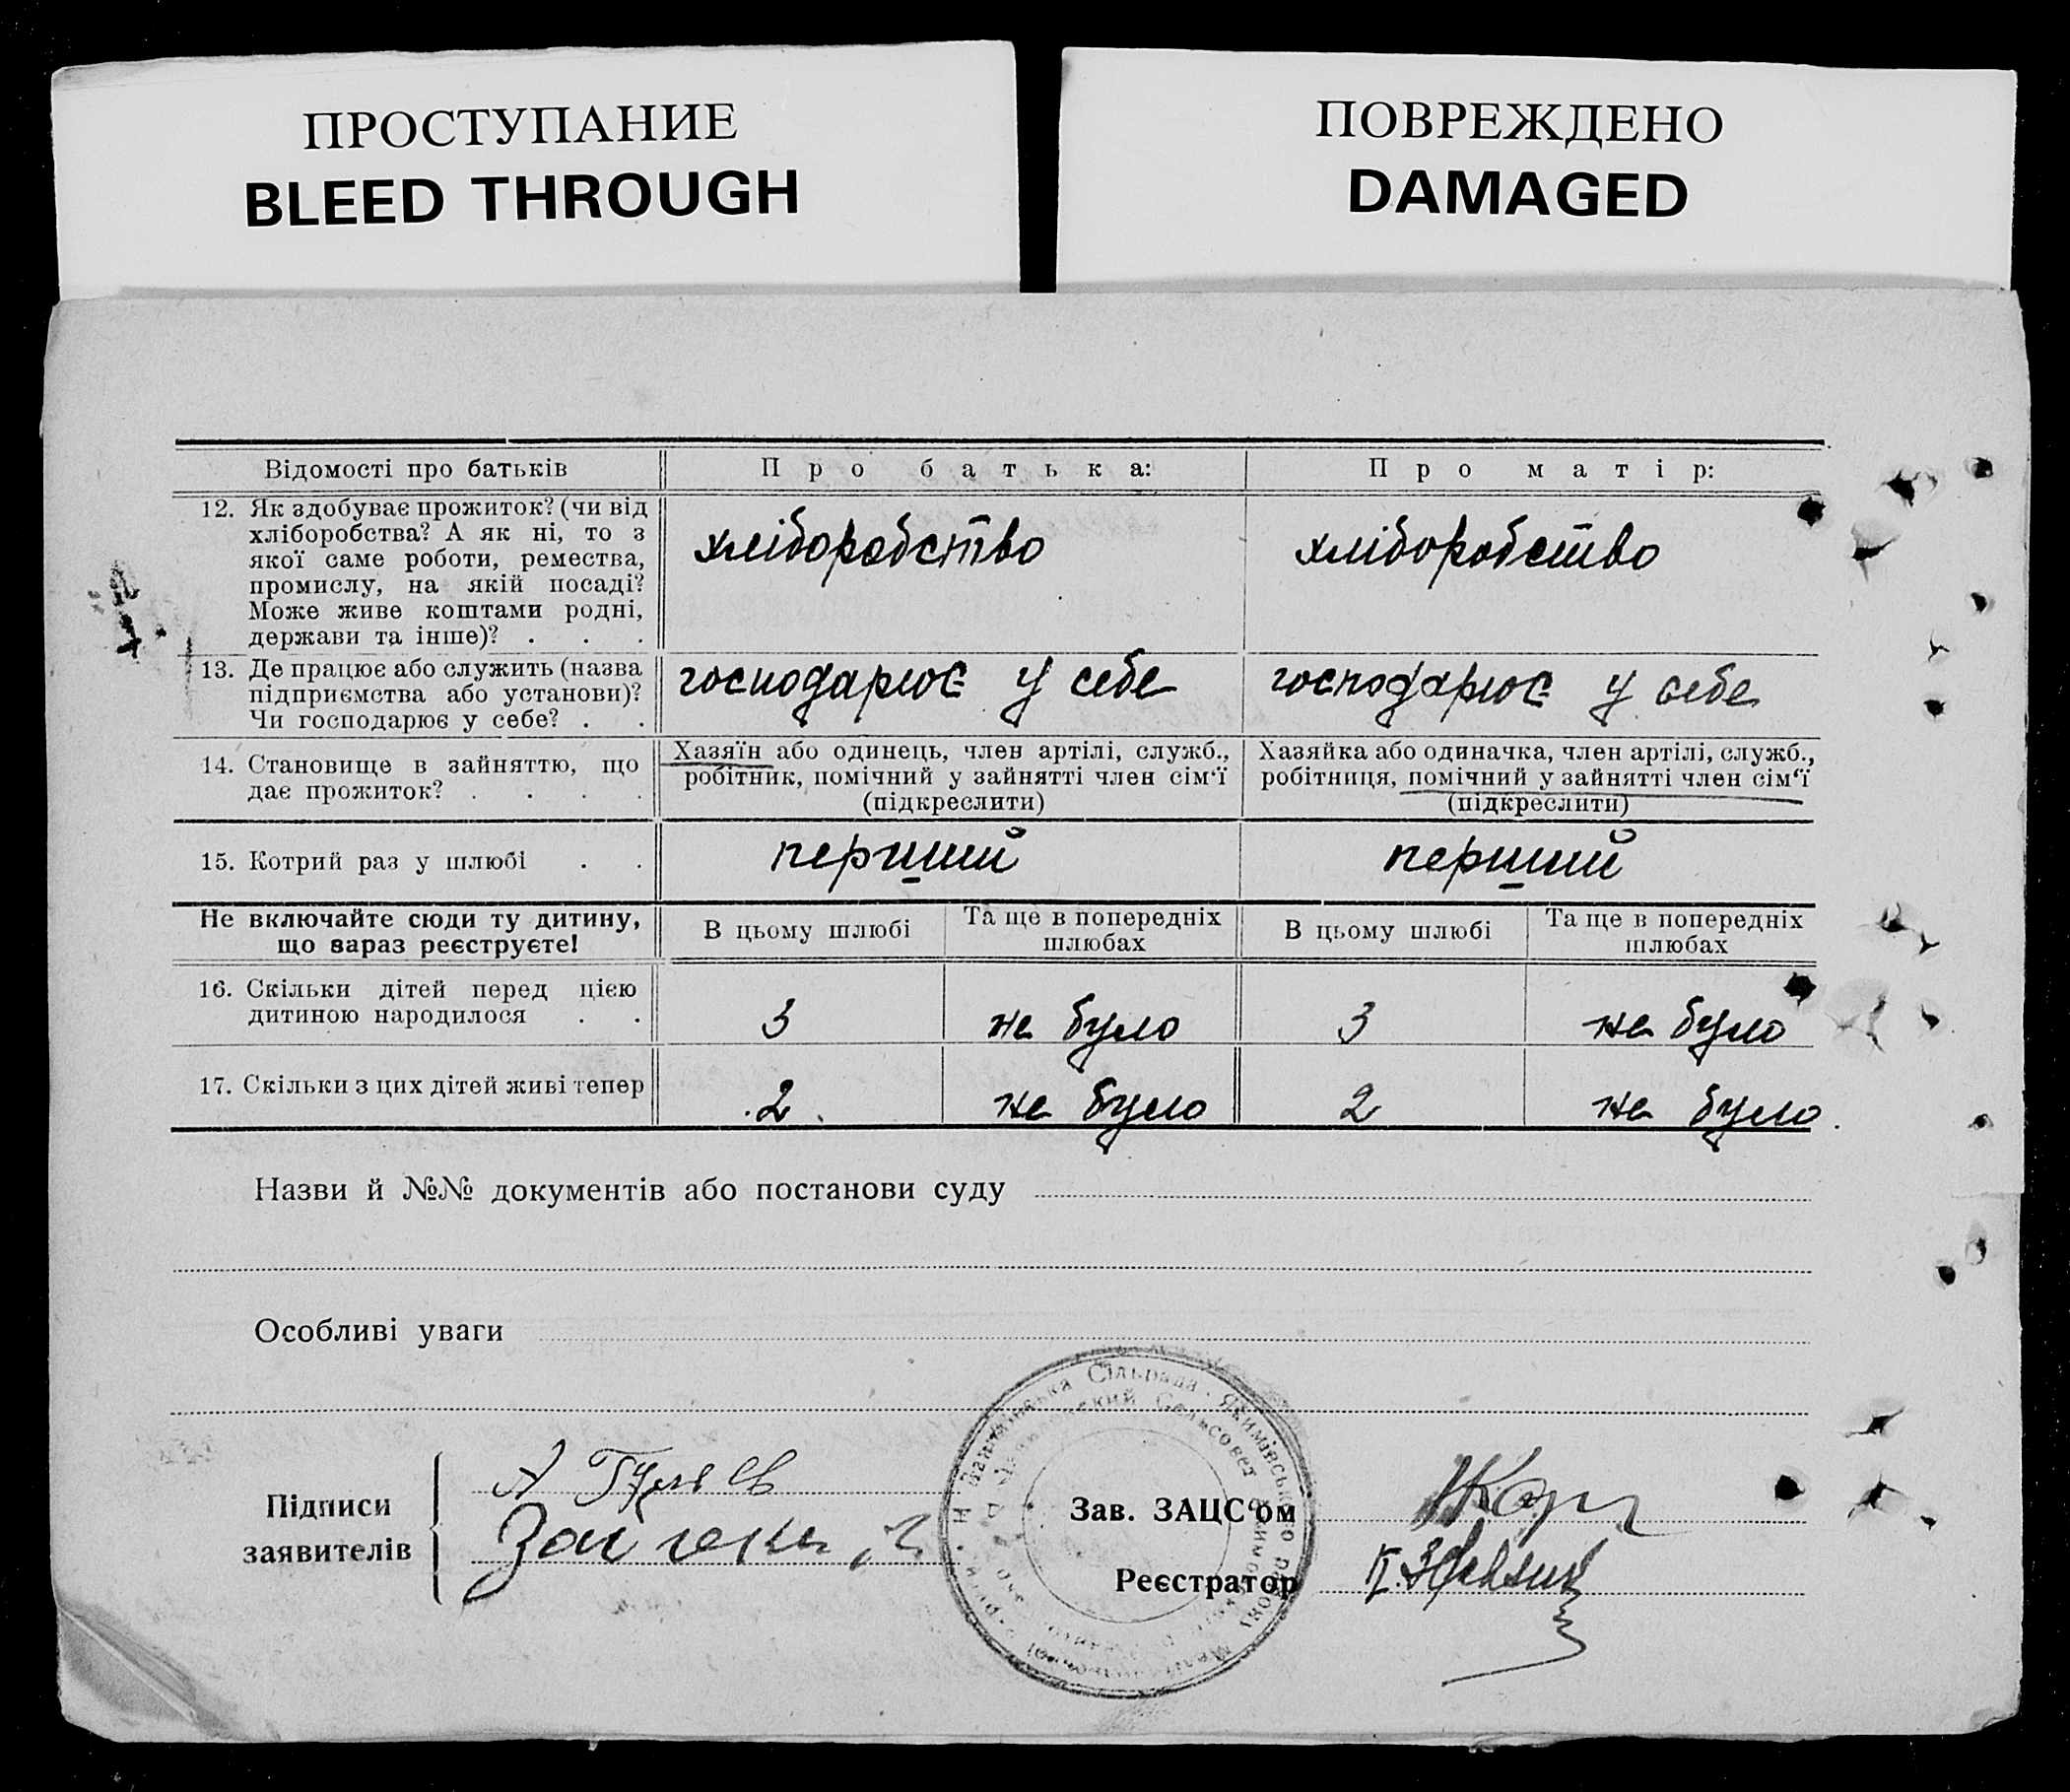 ПРОСТУПАНИЕ
BLEED THROUGH
ПОВРЕЖДЕНО
DAMAGED
Відомості про батьків
Про батька:
Про матір:
12. Як здобуває прожиток? (чи від
хліборобства? А як ні, то з
якої саме роботи, ремества,
промислу, на якій посаді?
Може живе коштами родні,
держави та інше)? . . .
хліборобство
хліборобство
13. Де працює або служить (назва
підприємства або установи)?
Чи господарює у себе? . .
господарює у себе
господарює у себе
14. Становище в зайняттю, що
дає прожиток? . . . .
Хазяїн або одинець, член артілі, служб.,
робітник, помічний у зайнятті член сім'ї
(підкреслити)
Хазяйка або одиначка, член артілі, служб.,
робітниця, помічний у зайнятті член сім'ї
(підкреслити)
15. Котрий раз у шлюбі . .
перший
перший
Не включайте сюди ту дитину,
що вараз реєструєте!
В цьому шлюбі
Та ще в попередніх
шлюбах
В цьому шлюбі
Та ще в попередніх
шлюбах
16. Скільки дітей перед цією
дитиною народилося . .
3
не було
3
не було
17. Скільки з цих дітей живі тепер
2
не було
2
не було
Назви й №№ документів або постанови суду
Особливі уваги
Підписи
заявителів
А Гуляєв
Зав. ЗАЦС'ом
Реєстратор
Сільрада
Якимівського
Сельсовет